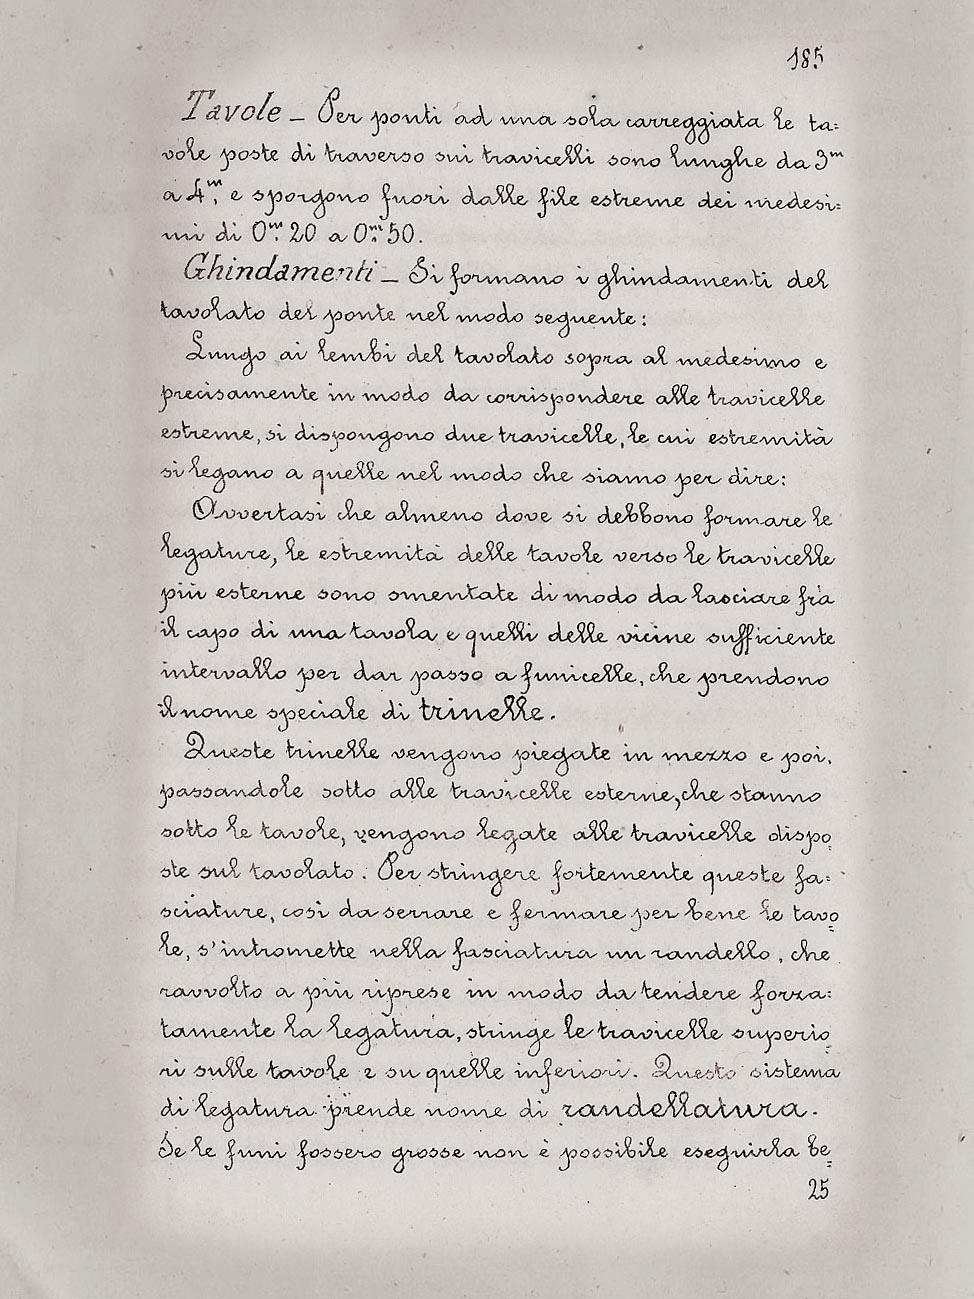 185
Tavole - Per ponti ad una sola carreggiata le ta=
vole poste di traverso sui travicelli sono lunghe da 3m
a 4m, e sporgono fuori dalle file estreme dei medesi=
mi di 0m.20 a 0m.50.
Ghindamenti - Si formano i ghindamenti del
tavolato del ponte nel modo seguente:
Lungo ai lembi del tavolato sopra al medesimo e
precisamente in modo da corrispondere alle travicelle
estreme, si dispongono due travicelle, le cui estremità
si legano a quelle nel modo che siamo per dire:
Avvertasi che almeno dove si debbono formare le
legature, le estremità delle tavole verso le travicelle
più esterne sono smentate di modo da lasciare frà
il capo di una tavola e quelli delle vicine sufficiente
intervallo per dar passo a funicelle, che prendono
il nome speciale di trinelle.
Queste trinelle vengono piegate in mezzo e poi,
passandole sotto alle travicelle esterne, che stanno
sotto le tavole, vengono legate alle travicelle dispo=
ste sul tavolato. Per stringere fortemente queste fa=
sciature, così da serrare e fermare per bene le tavo=
le, s'intromette nella fasciatura un randello, che
ravvolto a più riprese in modo da tendere forza=
tamente la legatura, stringe le travicelle superio=
ri sulle tavole e su quelle inferiori. Questo sistema
di legatura prende nome di randellatura.
Se le funi fossero grosse non è possibile eseguirla be=
25